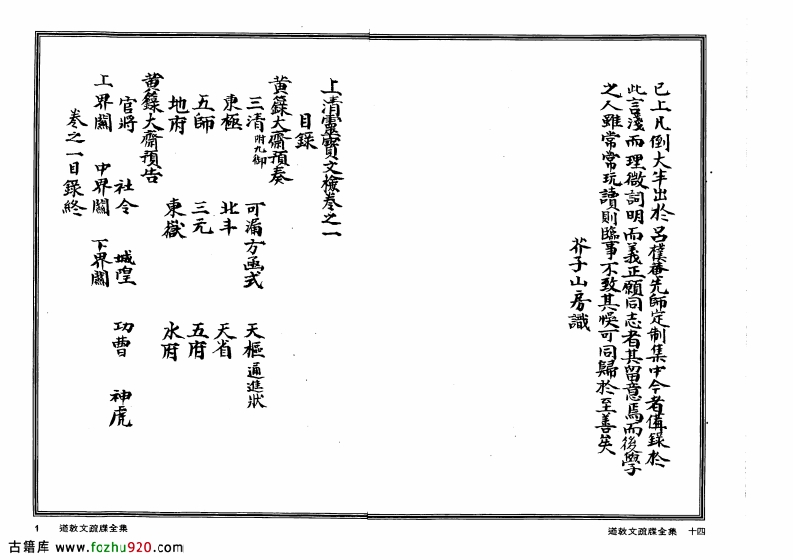 已上凡倒大半出於呂樸菴先師定制集中今者備錄於
此言淺而理微詞明而義正願同志者其留意焉而後學
之人雖常常玩讀則臨事不致其悞可同歸於至善矣
芥子山房識
十四 道教文疏牒全集
上清靈寶文檢卷之一
目錄
黃籙大齋預奏
三清附九御 可漏方函式 天樞通進狀
東極 北斗 天省
五師 三元 五府
地府 東嶽 水府
黃籙大齋預告
官將 社令 城隍 功曹 神虎
上界關 中界關 下界關
卷之一目錄終
1 道教文疏牒全集
古籍库 www.fozhu920.com